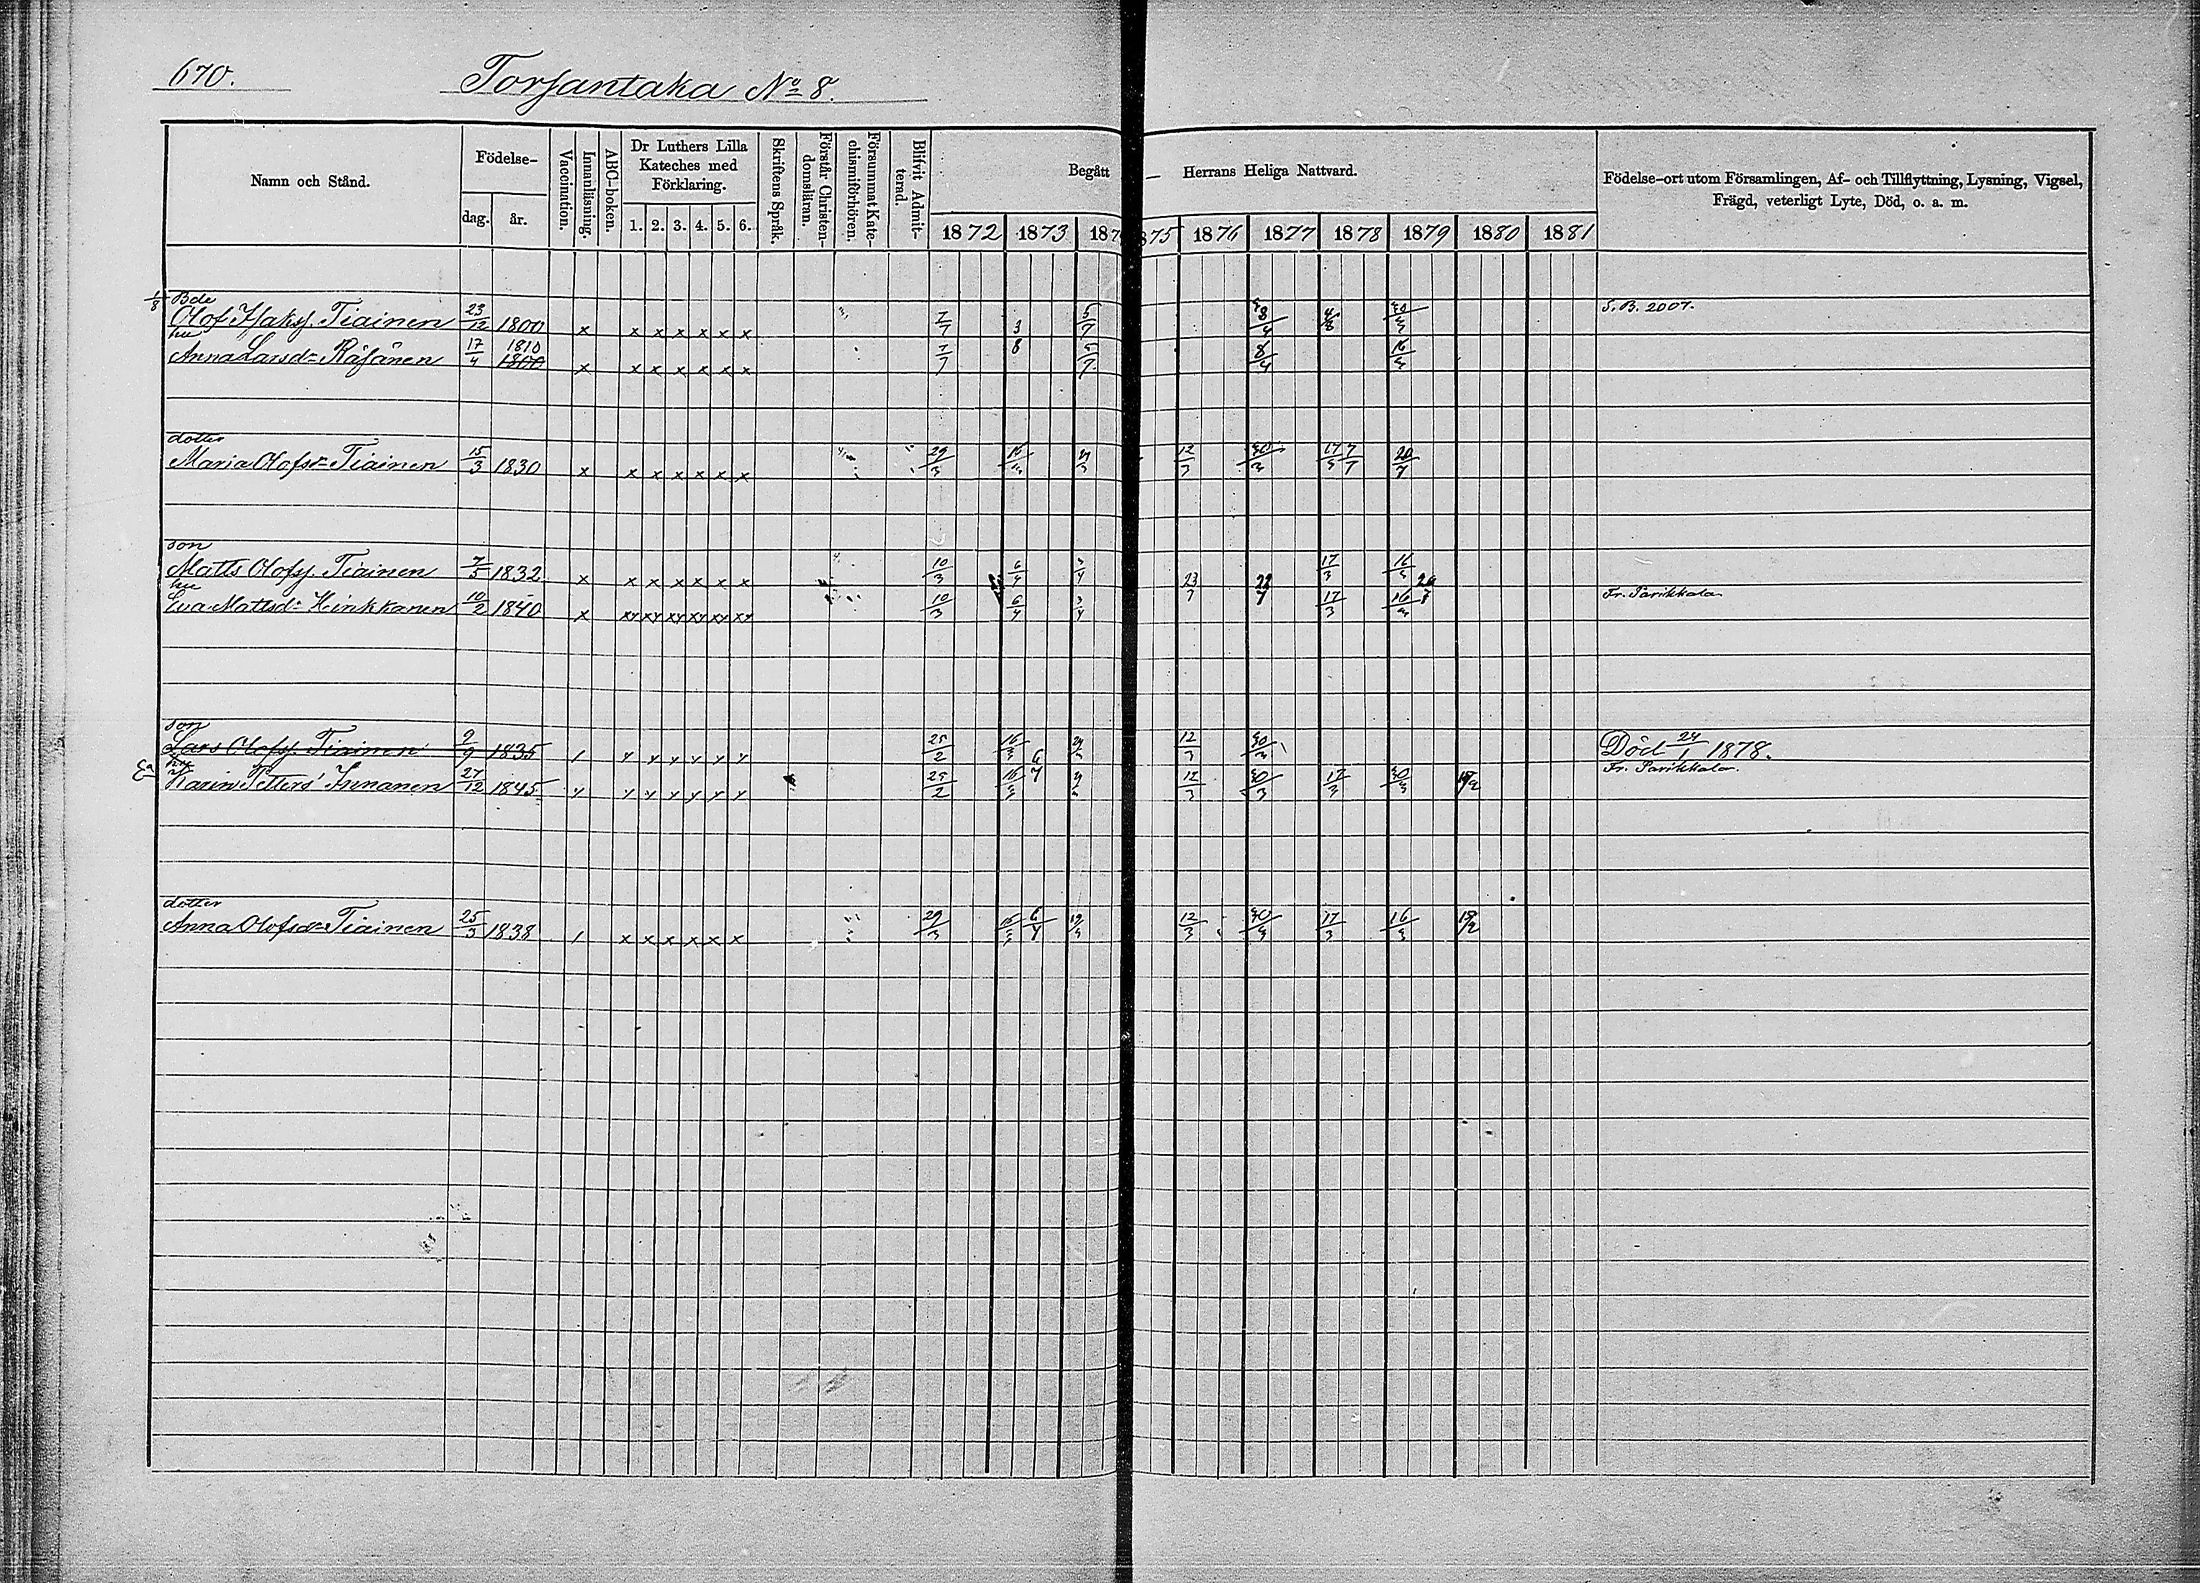 670.
Torsantaka No 8.
Namn och Stånd.
Födelse-
dag.
år.
Vaccination.
Innanläsning.
ABC-boken.
Dr Luthers Lilla
Kateches med
Förklaring.
1. 2. 3. 4. 5. 6.
Skriftens Språk.
Förstår Christen-
domsläran.
Försummat Kate-
chismiförhören.
Blifvit Admit-
terad.
Begått Herrans Heliga Nattvard.
1872 1873 187 75 1876 1877 1878 1879 1880 1881
Födelse-ort utom Församlingen, Af- och Tillflyttning, Lysning, Vigsel,
Frägd, veterligt Lyte, Död, o. a. m.
1/8 Bde
Olof Isakss. Tiainen 23/12 1800 x x x x x x x 7/7 5/7 8/4 4/8 S. B. 2007.
hu 1810
Anna Larsd= Räsänen 17/4 1800 x x x x x x x 7/7 5/7 8/4 16/3
dotter
Maria Olofsd= Tiainen 15/3 1830 x x x x x x x 29/3 12/3 30/3 17/3 7/7 20/7
son
Matts Olofss. Tiainen 7/5 1832 x x x x x x x 10/3 6/4 3/4 17/3 16/3
hu 23/7 22/7 20/7
Eva Mattsd= Hinkkanen 10/2 1840 x xy xy xy xy xy xy 10/3 6/4 3/4 17/3 16/3 Fr. Parikkala
son
Lars Olofss. Tiainen 9/9 1835 25/2 16/3 12/3 30/3 Död 24/1 1878.
hu 6/7
Karin Petters' Innanen 27/12 1845 25/2 16/3 12/3 30/3 17/3 30/3 Fr. Parikkala.
dotter
Anna Olofsd= Tiainen 25/3 1838 x x x x x x 29/3 6/7 12/3 30/3 17/3 16/3 18/2